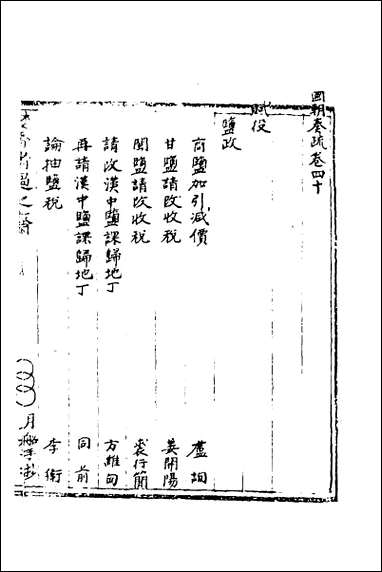 國朝奏疏卷四十
賦役
鹽政
商鹽加引減價 盧詢
甘鹽請改收税 姜開陽
閩鹽請改收税 裘行簡
請改漢中鹽課歸地丁 方維甸
再請漢中鹽課歸地丁 同前
論抽鹽税 李衛